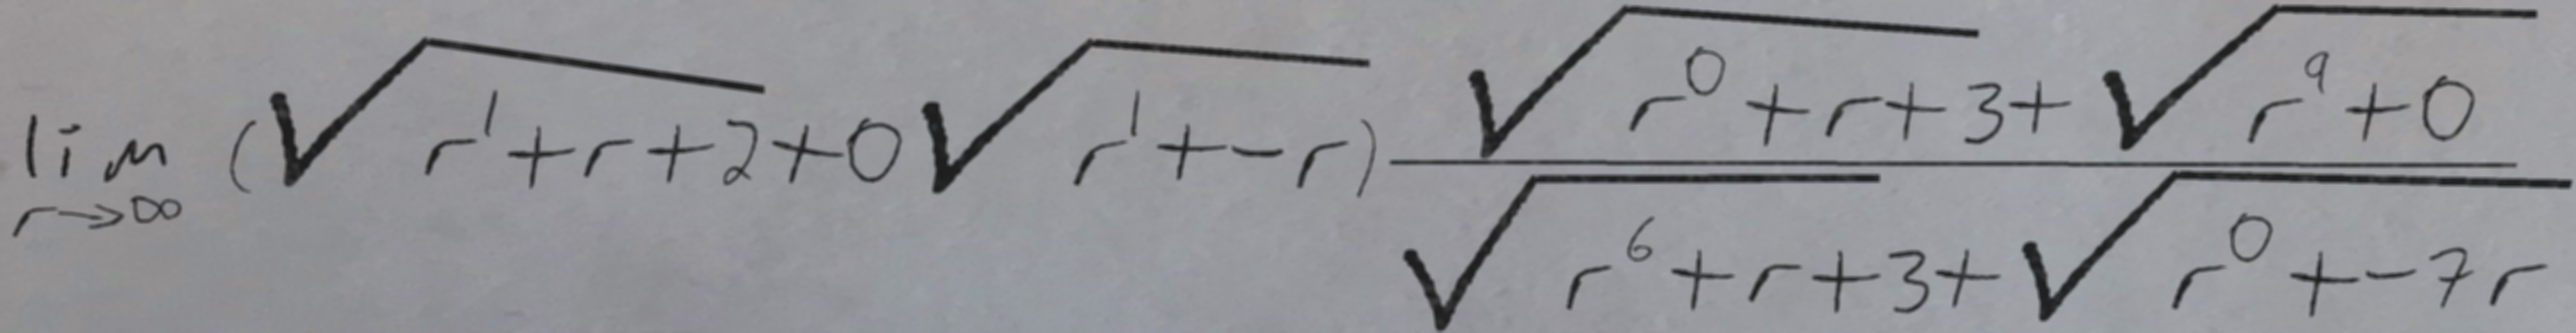 \lim_{r \to \infty} (\sqrt{r^1+r+2}+0\sqrt{r^1+-r}) \frac{\sqrt{r^0+r+3}+\sqrt{r^9+0}}{\sqrt{r^6+r+3}+\sqrt{r^0+-7r}}